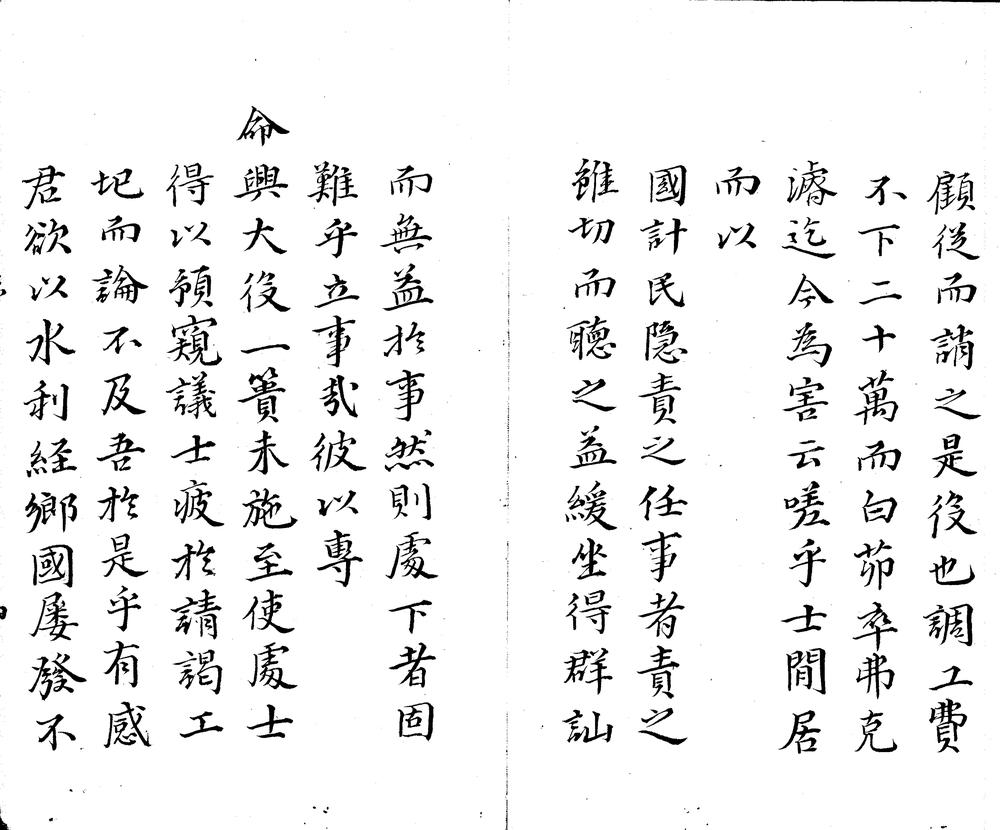 顧從而誚之是役也調工費
不下二十萬而白茆卒弗克
濬迄今為害云嗟乎士閒居
而以
國計民隱責之任事者責之
雖切而聽之益緩坐得群訕
而無益於事然則處下者固
難乎立事哉彼以專
命興大役一簣未施至使處士
得以預窺議士疲於請謁工
圮而論不及吾於是乎有感
君欲以水利経鄉國屡發不